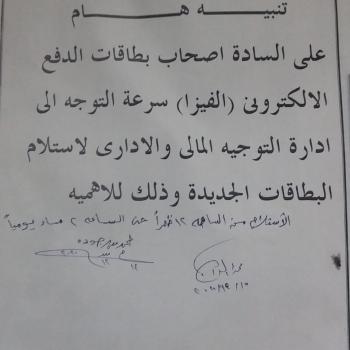 تنبيه هام
على السادة اصحاب بطاقات الدفع
الالكترونى (الفيزا) سرعة التوجه الى
ادارة التوجيه المالى والادارى لاستلام
البطاقات الجديدة وذلك للاهميه
الاستلام من الساعه ١٢ ظهراً حتى الساعه ٢ مساء يومياً